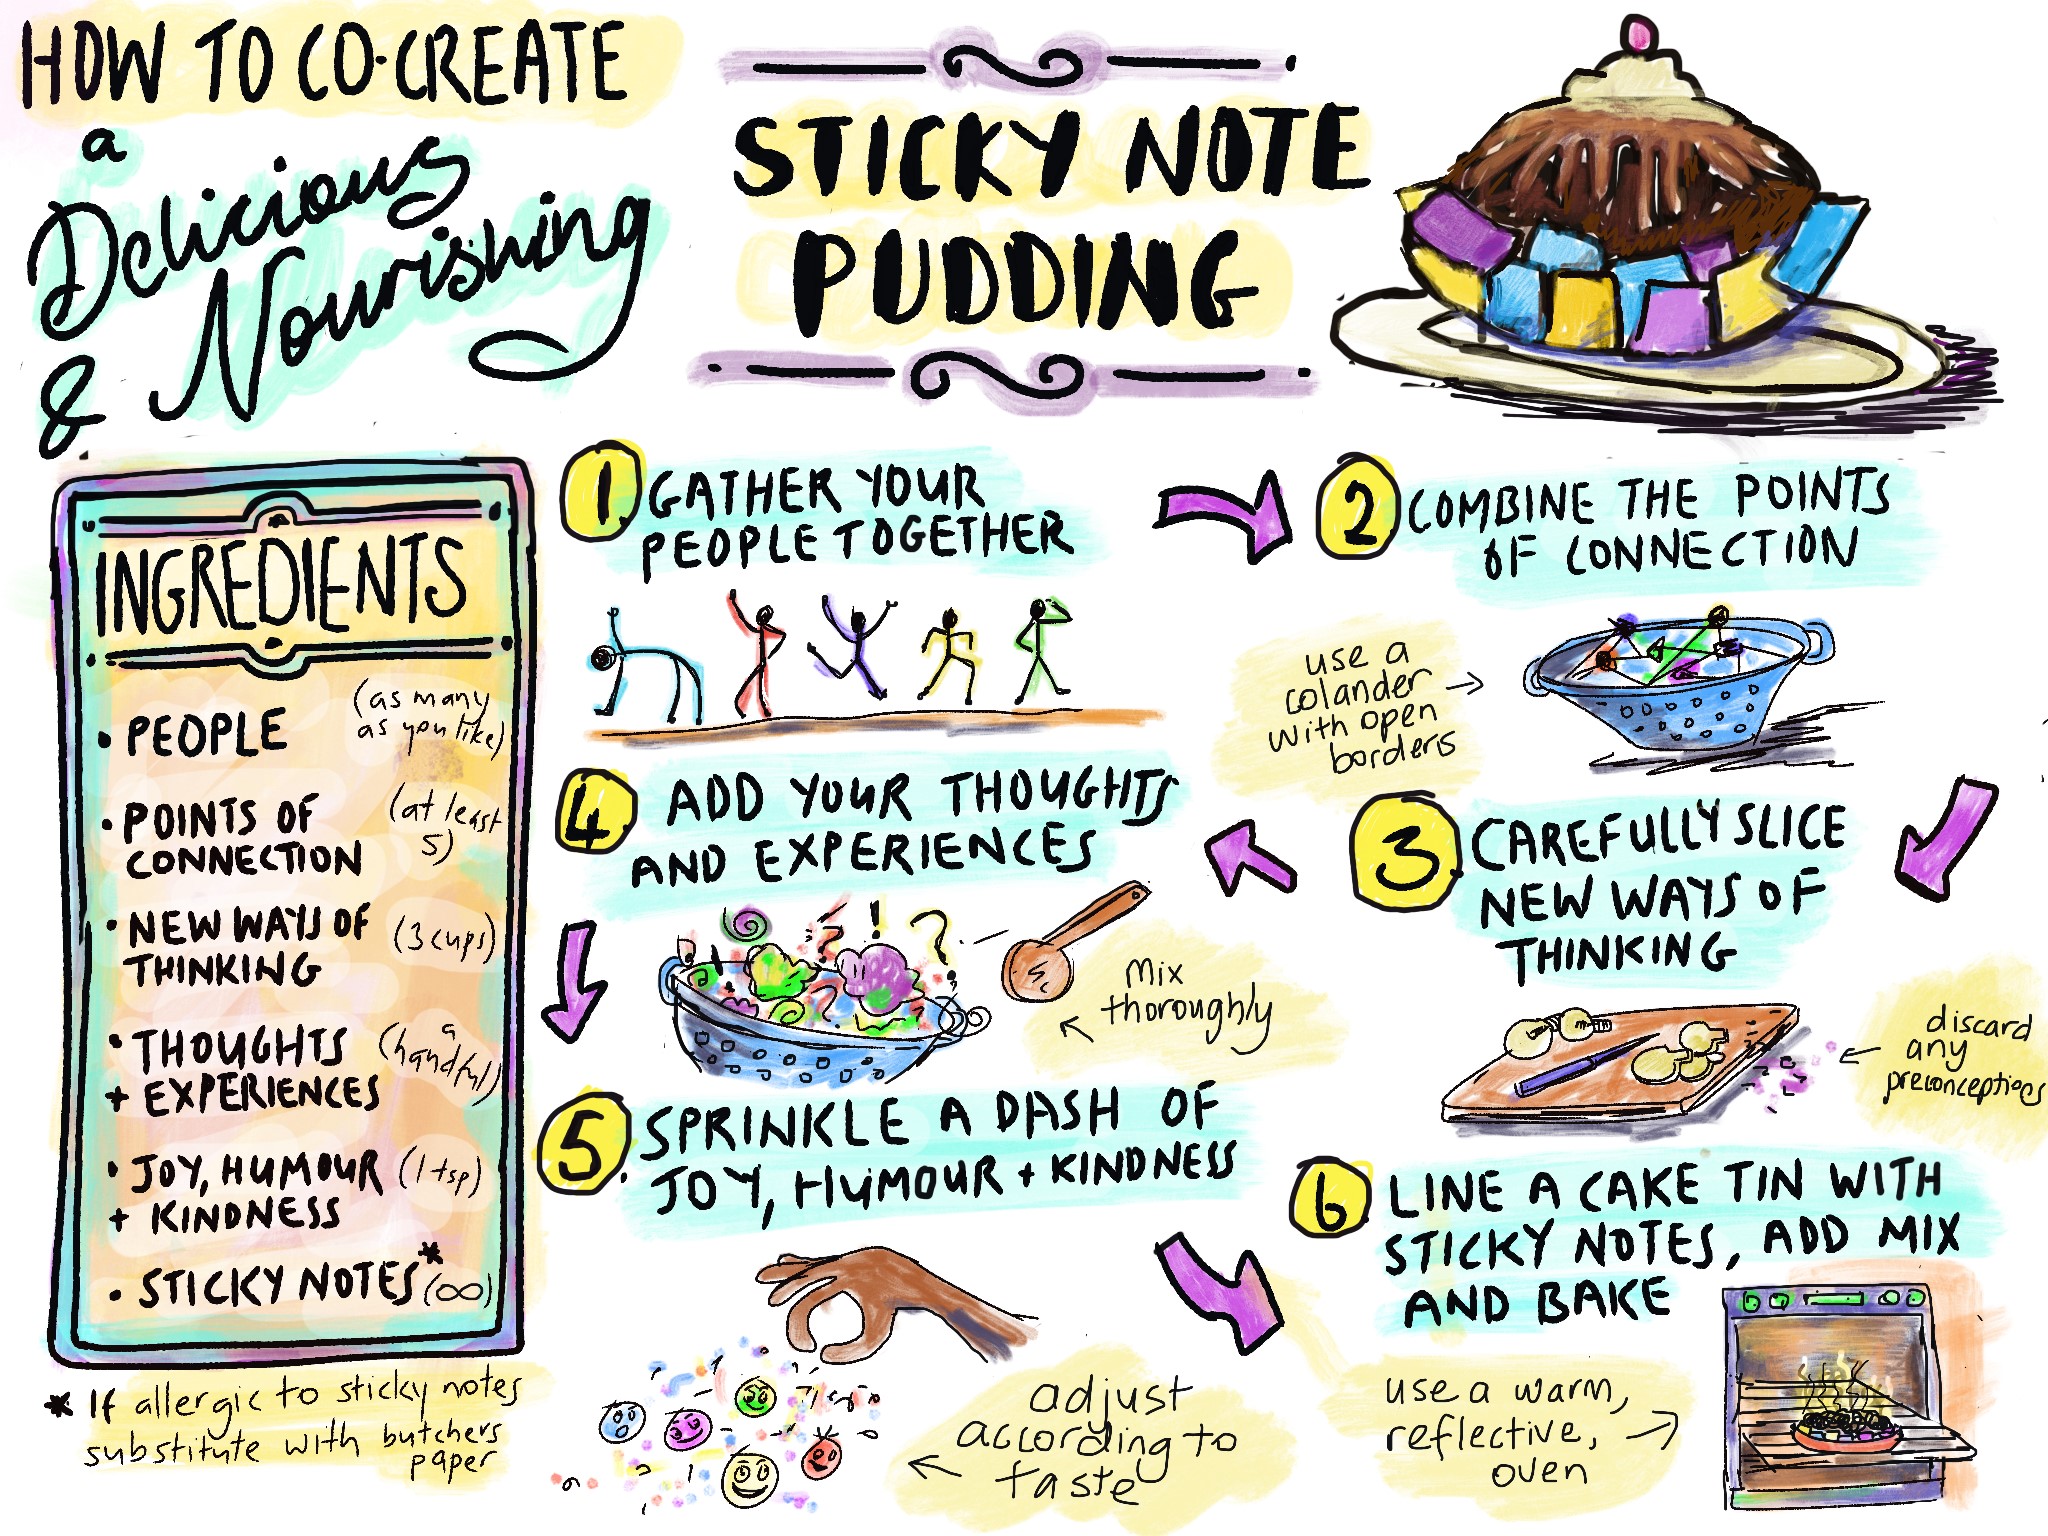 HOW TO CO-CREATE
a
Delicious
& Nourishing
STICKY NOTE
PUDDING
INGREDIENTS
• PEOPLE (as many
as you like)
• POINTS OF
CONNECTION (at least
5)
• NEW WAYS OF
THINKING (3 cups)
• THOUGHTS
+ EXPERIENCES (a
handful)
• JOY, HUMOUR (1 tsp)
+ KINDNESS
• STICKY NOTES* (∞)
* If allergic to sticky notes
substitute with butchers
paper
1 GATHER YOUR
PEOPLE TOGETHER
2 COMBINE THE POINTS
OF CONNECTION
use a
colander
with open
borders
3 CAREFULLY SLICE
NEW WAYS OF
THINKING
discard
any
preconceptions
4 ADD YOUR THOUGHTS
AND EXPERIENCES
! ?
Mix
thoroughly
5 SPRINKLE A DASH OF
JOY, HUMOUR + KINDNESS
adjust
according to
taste
6 LINE A CAKE TIN WITH
STICKY NOTES, ADD MIX
AND BAKE
use a warm,
reflective,
oven